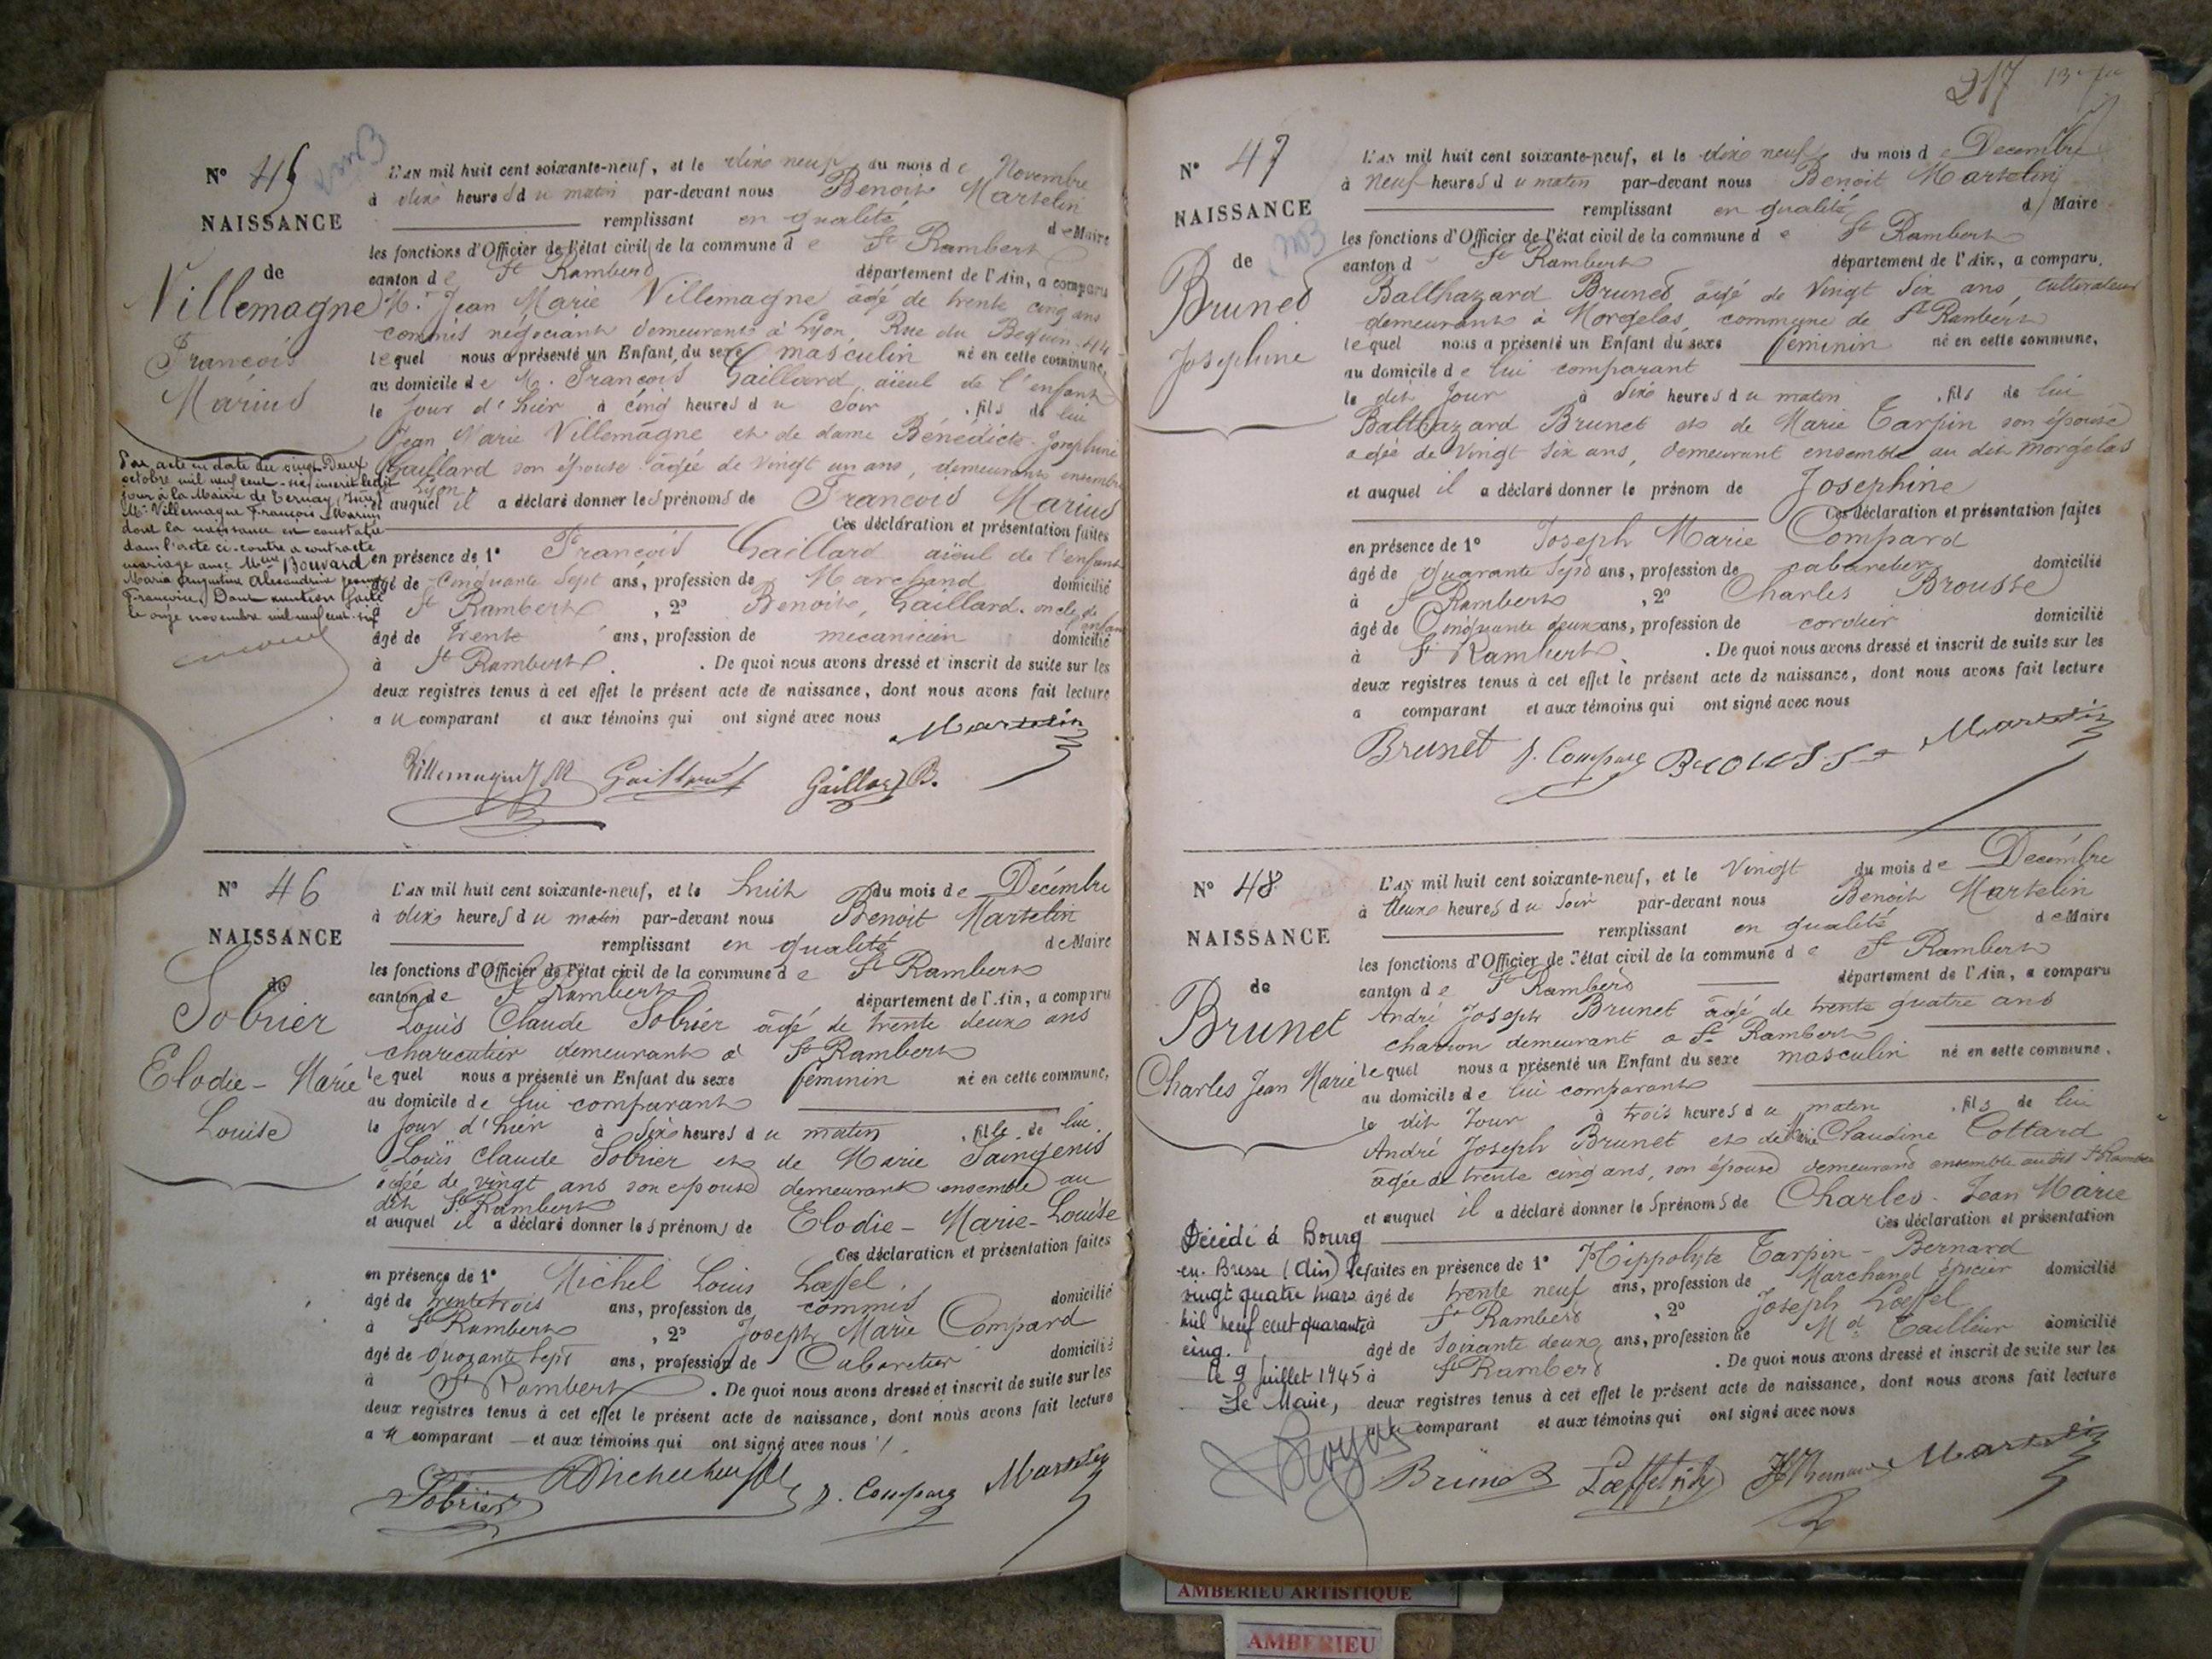 N° 45
NAISSANCE
de
Villemagne
François
Marius
L'AN mil huit cent soixante-neuf, et le dix neuf du mois de Novembre
à dix heures du matin par-devant nous Benoit Martelin
remplissant en qualité de Maire
les fonctions d'Officier de l'état civil de la commune de St Rambert
canton de St Rambert département de l'Ain, a comparu
M. Jean Marie Villemagne âgé de trente cinq ans
commis négociant demeurant à Lyon, Rue du Beguin 44
lequel nous a présenté un Enfant du sexe masculin né en cette commune,
au domicile de M. François Gaillard, aïeul de l'enfant
le jour d'hier à cinq heures du soir , fils de lui
Jean Marie Villemagne et de dame Bénédicte Josephine
Gaillard son épouse âgée de vingt un ans, demeurant ensemble
à Lyon
et auquel il a déclaré donner les prénoms de François Marius
Ces déclaration et présentation faites
en présence de 1° François Gaillard aïeul de l'enfant
âgé de Cinquante Sept ans, profession de Marchand domicilié
à St Rambert , 2° Benoit Gaillard, oncle de l'enfant
âgé de trente ans, profession de mécanicien domicilié
à St Rambert . De quoi nous avons dressé et inscrit de suite sur les
deux registres tenus à cet effet le présent acte de naissance, dont nous avons fait lecture
au comparant et aux témoins qui ont signé avec nous
Martelin
Villemagne J M Gaillard Gaillard B.
Par acte en date du vingt-Deux
octobre mil neuf cent-six inscrit ledit
jour à la Mairie de Ternay (Isère)
Mr Villemagne François Marius
dont la naissance est constatée
dans l'acte ci-contre a contracté
mariage avec Melle Bouvard
Maria Augustine Alexandrine Jeanne
Françoise. Dont mention faite
le onze novembre mil neuf cent-six
N° 46
NAISSANCE
de
Sobrier
Elodie-Marie
Louise
L'AN mil huit cent soixante-neuf, et le huit du mois de Décembre
à dix heures du matin par-devant nous Benoit Martelin
remplissant en qualité de Maire
les fonctions d'Officier de l'état civil de la commune de St Rambert
canton de St Rambert département de l'Ain, a comparu
Louis Claude Sobrier âgé de trente deux ans
charcutier demeurant à St Rambert
lequel nous a présenté un Enfant du sexe féminin né en cette commune,
au domicile de lui comparant
le jour d'hier à Six heures du matin , fille de lui
Louis Claude Sobrier et de Marie Saingenis
âgée de vingt ans son épouse demeurant ensemble au
dit St Rambert
et auquel il a déclaré donner les prénoms de Elodie-Marie-Louise
Ces déclaration et présentation faites
en présence de 1° Michel Louis Lœffel
âgé de trente trois ans, profession de commis domicilié
à St Rambert , 2° Joseph Marie Compard
âgé de quarante sept ans, profession de Cabaretier domicilié
à St Rambert . De quoi nous avons dressé et inscrit de suite sur les
deux registres tenus à cet effet le présent acte de naissance, dont nous avons fait lecture
au comparant et aux témoins qui ont signé avec nous
Sobrier J. Compard Martelin
217
N° 47
NAISSANCE
de
Brunet
Josephine
L'AN mil huit cent soixante-neuf, et le dix neuf du mois de Decembre
à neuf heures du matin par-devant nous Benoit Martelin
remplissant en qualité d Maire
les fonctions d'Officier de l'état civil de la commune de St Rambert
canton d St Rambert département de l'Ain, a comparu.
Balthazard Brunet, âgé de Vingt Six ans, cultivateur
demeurant à Morgelas, commune de St Rambert
lequel nous a présenté un Enfant du sexe féminin né en cette commune,
au domicile de lui comparant
le dit Jour à Six heures du matin , fils de lui
Balthazard Brunet et de Marie Tarpin son épouse
agée de Vingt Six ans, demeurant ensemble au dit Morgelas
et auquel il a déclaré donner le prénom de Josephine
Ces déclaration et présentation faites
en présence de 1° Joseph Marie Compard
âgé de quarante Sept ans, profession de cabaretier domicilié
à St Rambert , 2° Charles Brousse
âgé de Cinquante deux ans, profession de cordier domicilié
à St Rambert . De quoi nous avons dressé et inscrit de suite sur les
deux registres tenus à cet effet le présent acte de naissance, dont nous avons fait lecture
a comparant et aux témoins qui ont signé avec nous
Brunet J. Compard Brousse Martelin
N° 48
NAISSANCE
de
Brunet
Charles Jean Marie
L'AN mil huit cent soixante-neuf, et le Vingt du mois de Decembre
à deux heures du Soir par-devant nous Benoit Martelin
remplissant en qualité de Maire
les fonctions d'Officier de l'état civil de la commune de St Rambert
canton de St Rambert département de l'Ain, a comparu
André Joseph Brunet âgé de trente quatre ans
charron demeurant a St Rambert
lequel nous a présenté un Enfant du sexe masculin né en cette commune,
au domicile de lui comparant
le dit Jour à trois heures du matin , fils de lui
André Joseph Brunet et de Marie Claudine Cottard
agée de trente cinq ans, son épouse demeurant ensemble au dit St Rambert
et auquel il a déclaré donner les prénoms de Charles-Jean Marie
Ces déclaration et présentation
faites en présence de 1° Hippolyte Tarpin-Bernard
âgé de trente neuf ans, profession de Marchand épicier domicilié
à St Rambert , 2° Joseph Lœffel
âgé de Soixante deux ans, profession de Md Tailleur domicilié
à St Rambert . De quoi nous avons dressé et inscrit de suite sur les
deux registres tenus à cet effet le présent acte de naissance, dont nous avons fait lecture
comparant et aux témoins qui ont signé avec nous
Brunet Lœffel Martelin
Décédé à Bourg
en Bresse (Ain) le
vingt quatre mars
mil neuf cent quarante
cinq.
le 9 Juillet 1945
Le Maire,
AMBERIEU ARTISTIQUE
AMBERIEU